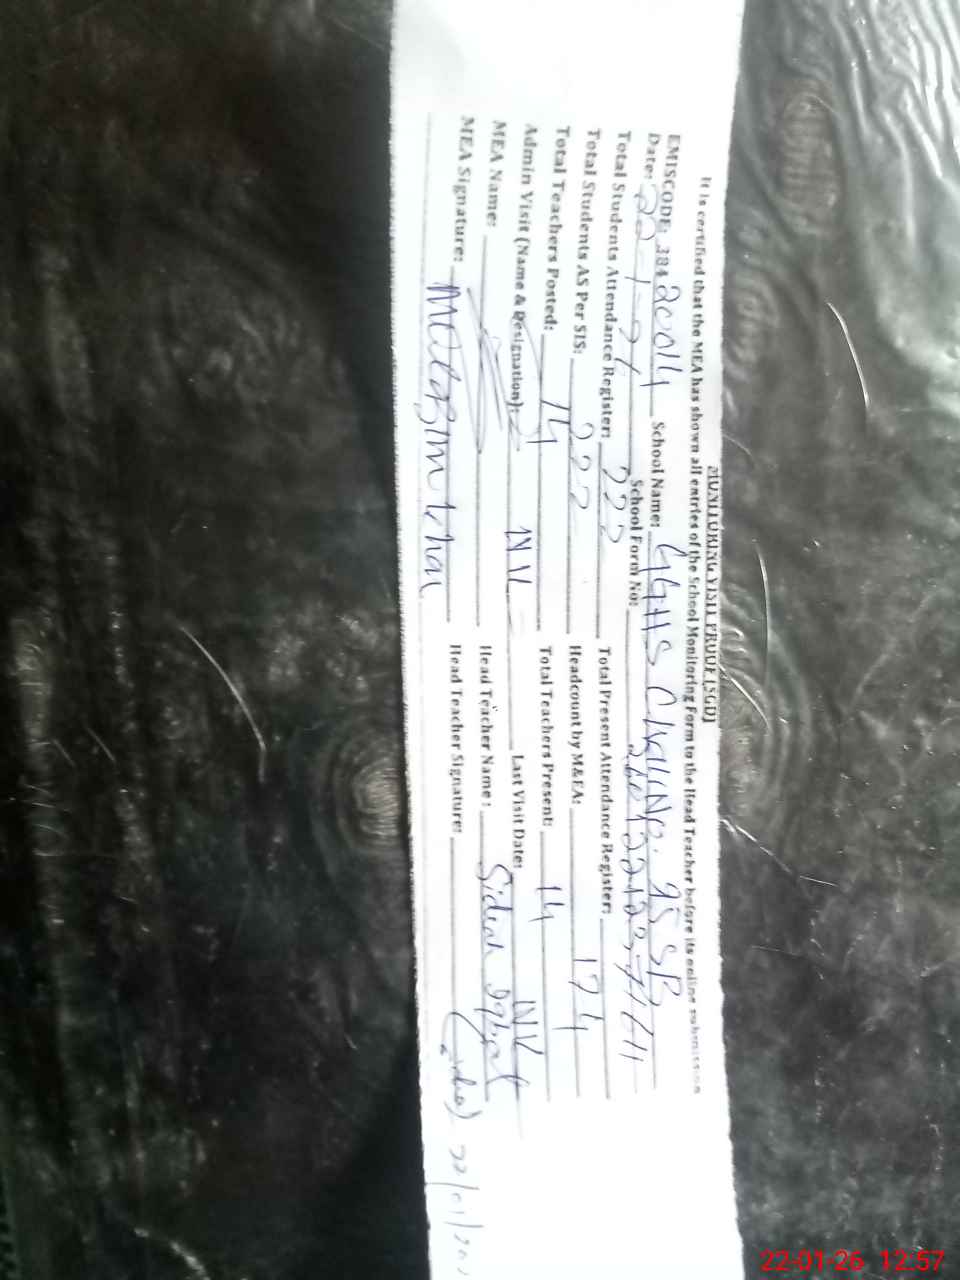 MONITORING VISIT PROOF [SGD]
It is certified that the MEA has shown all entries of the School Monitoring Form to the Head Teacher before its online submission
EMISCODE: 38420014 School Name: GGHS Chak No. 95 SB
Date: 22-1-26 School Form No:
Total Students Attendance Register: 222 Total Present Attendance Register:
Total Students AS Per SIS: 222 Headcount by M&EA: 174
Total Teachers Posted: 14 Total Teachers Present: 14
Admin Visit (Name & Designation): NIL Last Visit Date: NIL
MEA Name: Head Teacher Name: Sidrah Iqbal
MEA Signature: Head Teacher Signature:
22/01/202
22-01-26 12:57